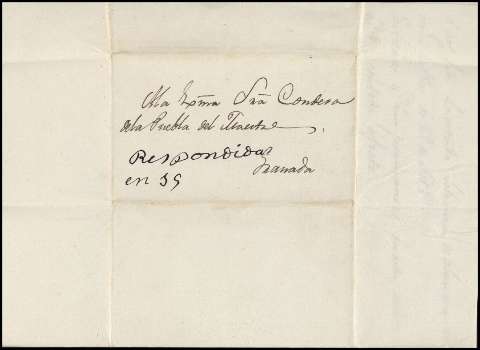 A la Exma Sra Condesa
de la Puebla del Maestre
Respondida
Granada
en 39